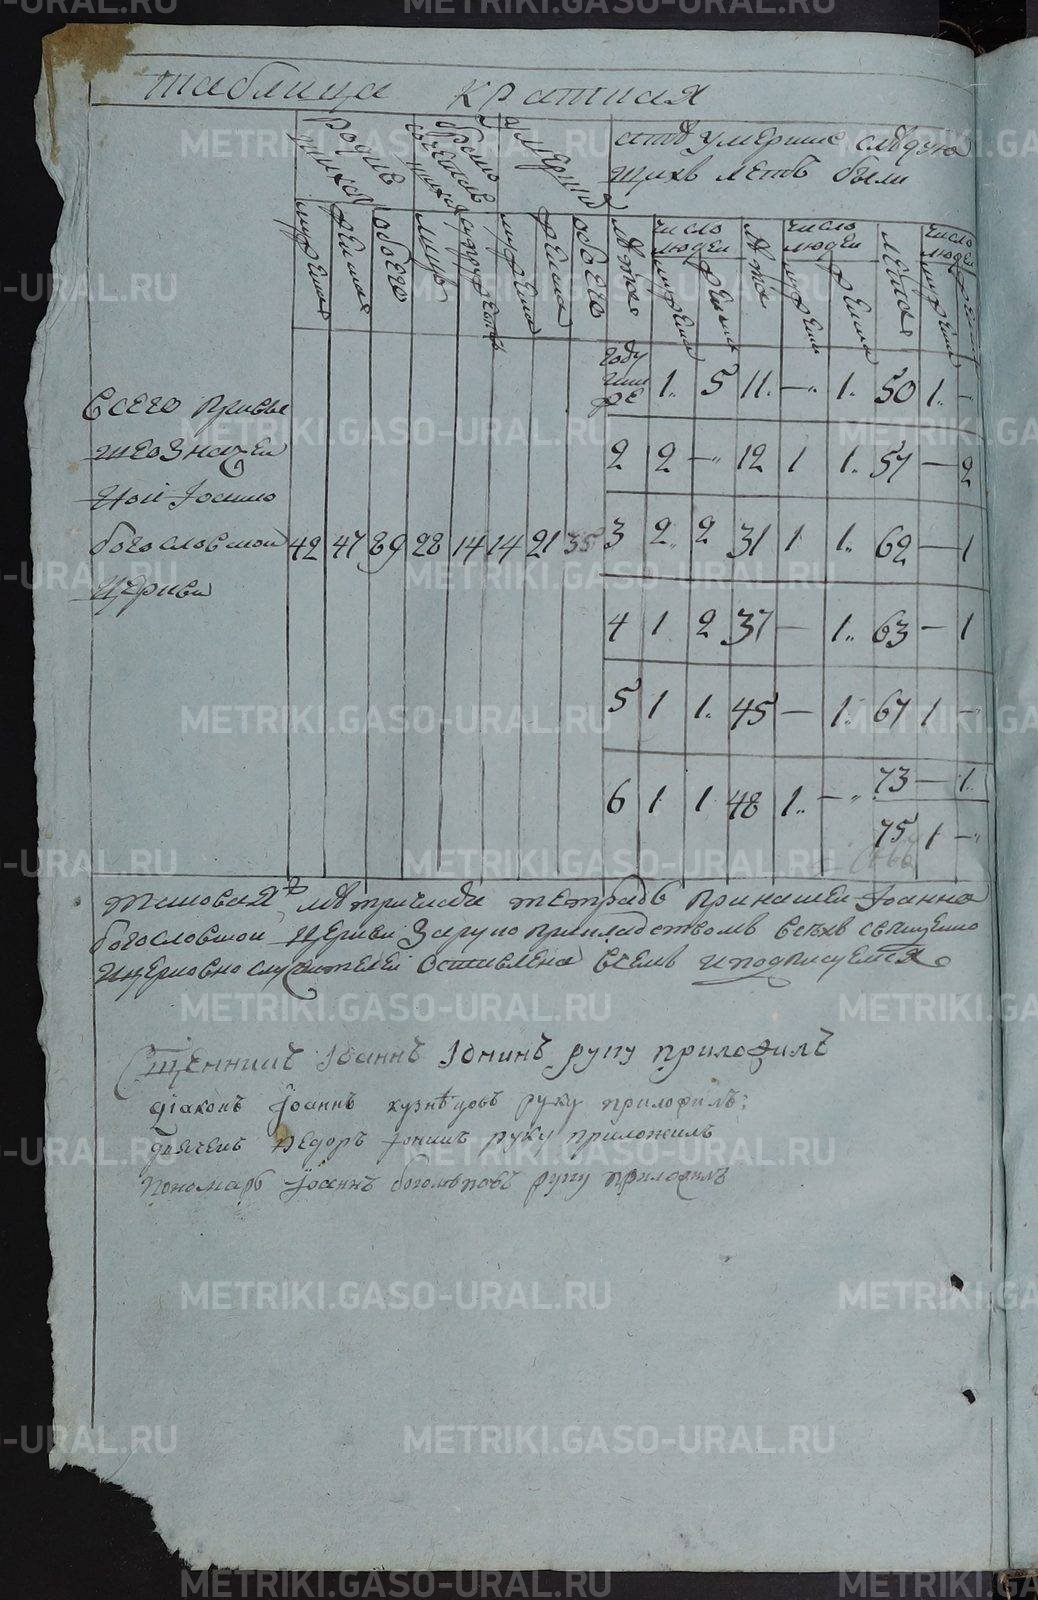 таблица краткая
родив
шихся
брако
сочетав
шихся
умерши
а изъ умершихъ следую
щихъ летъ были
мужеска
женска
обоего
мужъ
супружествъ
мужеска
женска
обоего
лѣта
число
людей
мужеска
женска
лѣта
число
людей
мужеска
женска
лѣта
число
людей
мужеска
году
1. 5 11. — 1. 50 1. —
всего при
2 2 — 12 1 1. 57 — 2
Иоанно
богословской 42 47 89 28 14 14 21 35 3 2 2 31 1 1. 62 — 1
церкви
4 1 2 37 — 1. 63 — 1
5 1 1. 45 — 1. 67 1 —
6 1 1 48 1. — 73 — 1.
75 1 —
таковая метрическая тетрадь при нашей Иоанно
богословской церкви за рукоприкладствомъ всехъ священно
и церковнослужителей оставлена в семъ и подписуемся
Священникъ Іоаннъ Іонинъ руку приложилъ
діаконъ Іоаннъ кузнѣцовъ руку приложилъ:
дьячекъ Ѳедоръ Іонинъ руку приложилъ
пономарь Іоаннъ боголѣповъ руку приложилъ
METRIKI.GASO-URAL.RU